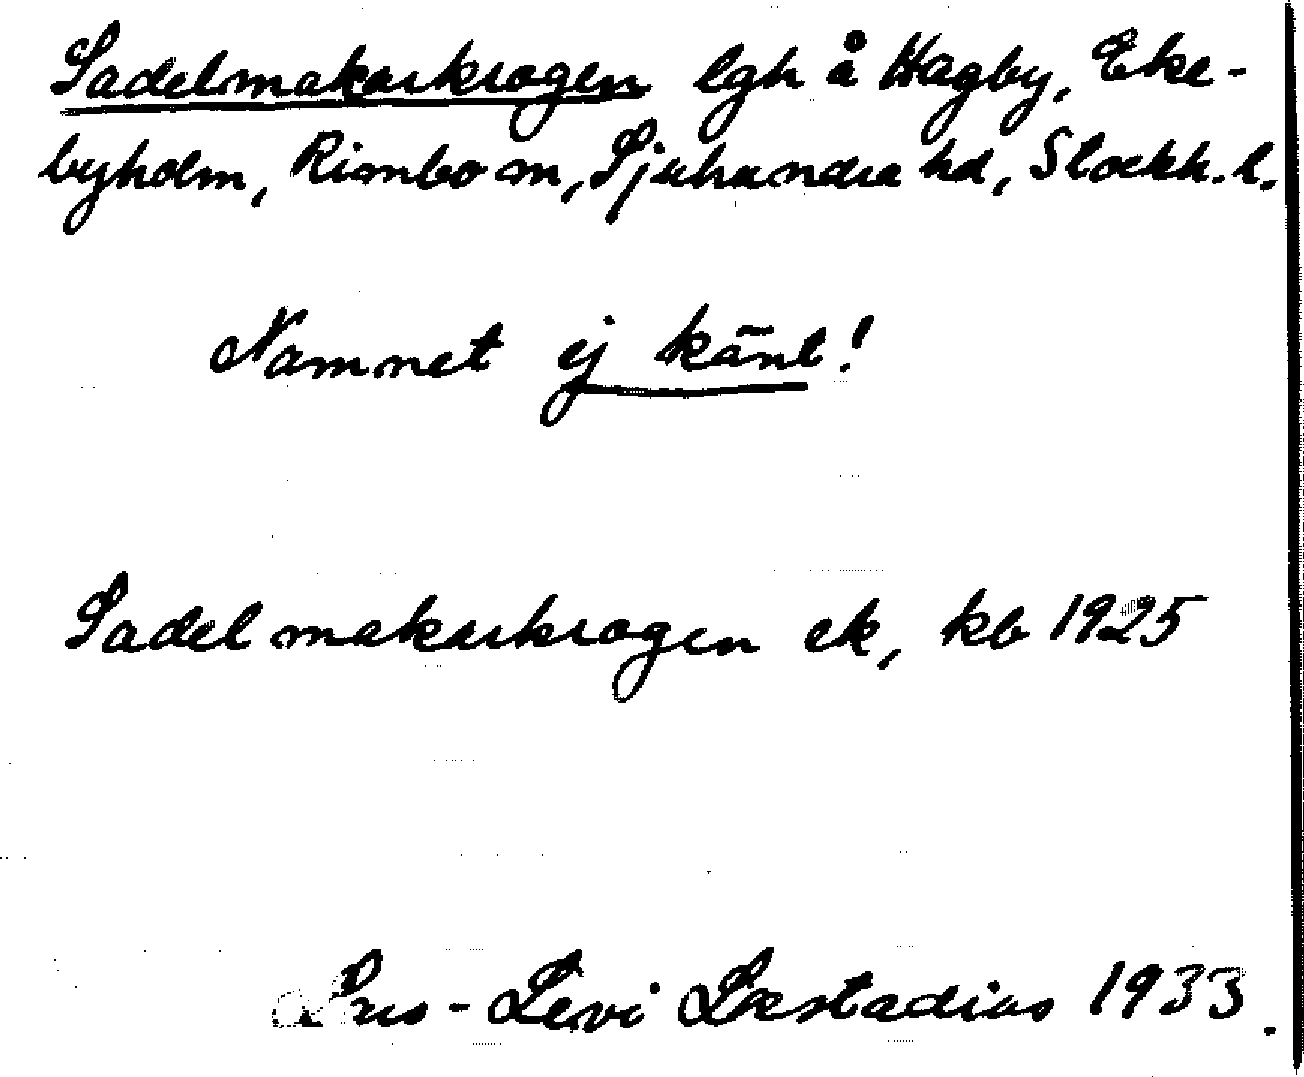 Sadelmakarkrogen lgh å Hagby, Eke-
byholm, Rimbo sn, Sjuhundra hd, Stockh. l.
Namnet ej känt!
Sadelmakarkrogen ek, kb 1925
Lars-Levi Læstadius 1933.